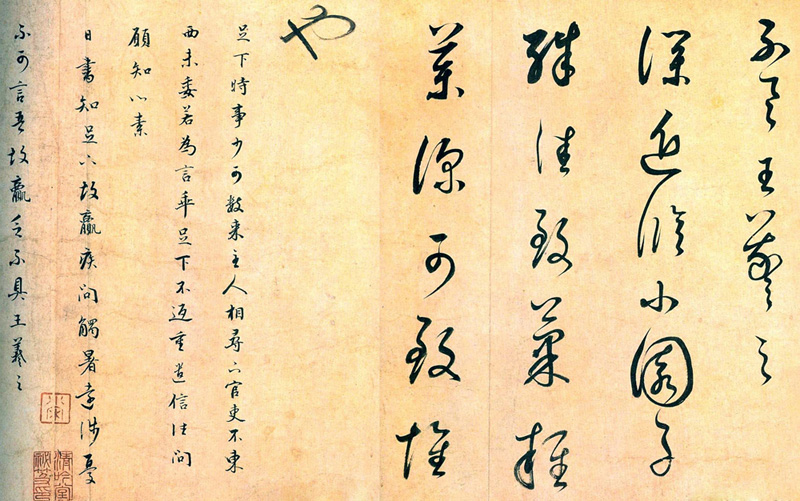 不王羲之
深近修小園子
殊佳致果雜
藥深可致懷
也
足下時事少可數來主人相尋下官吏不東
西未委若為言乖足下不返重遣信往問
願知心素
日書知足下故羸疾問觸暑遠涉憂
不可言吾故羸乏不具王羲之